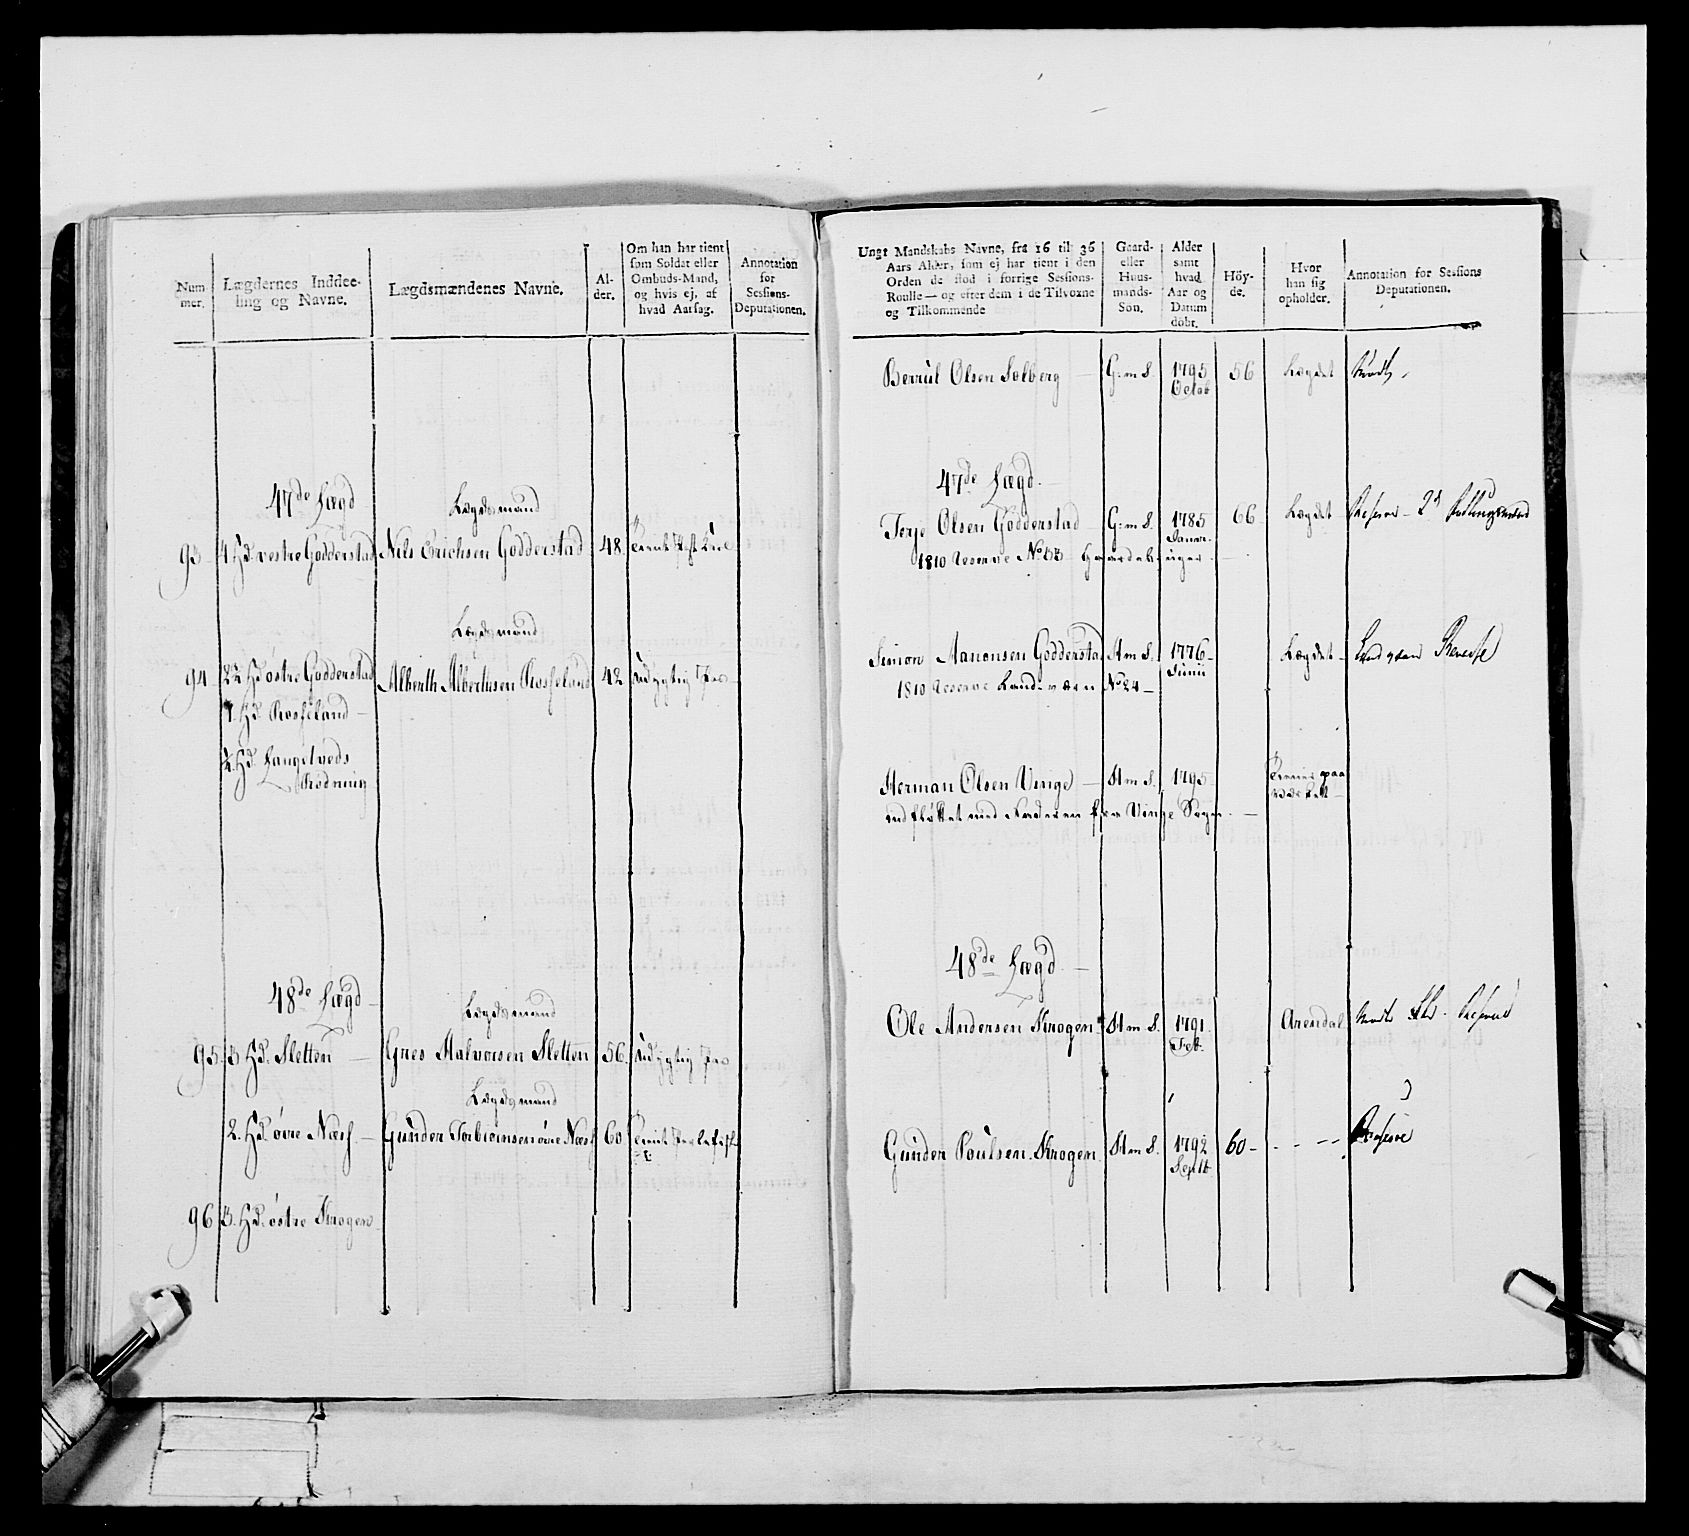 Num-
mer.
Lægdernes Inddee-
ling og Navne.
Lægdsmændenes Navne.
Al-
der.
Om han har tient
som Soldat eller
Ombuds-Mand,
og hvis ej, af
hvad Aarsag.
Annotation
for
Sessions-
Deputationen.
47de Lægd
Lægdsmand
93 4 Hd vestre Godderstad Nils Erichsen Godderstad 48.
Lægdsmand
94 2½ Hd østre Godderstad Alberth Albertusen Rosseland 42 Udygtig
1. Hd. Rosseland
½ Hd. Langetveds
Rødning
48de Lægd
Lægdsmand
95. 3 Hd. Sletten Gres Halvorsen Sletten 56. Udygtig
Lægdsmand
2. Hd. øvre Næss Gunder Torbiørnsen øvre Næss 60
96 3. Hd. østre Krogen
Ungt Mandskabs Navne, fra 16 til 36
Aars Alder, som ej har tient i den
Orden de stod i forrige Sessions-
Roulle — og efter dem i de Tilvoxne
og Tilkommende
Gaard-
eller
Huus-
mands-
Søn.
Alder
samt
hvad
Aar og
Datum
døbt.
Höy-
de.
Hvor
han sig
opholder.
Annotation for Sessions
Deputationen.
Berrul Olsen Solberg — G:m S. 1795 56 Lægdet
Octob
47de Lægd.
Terje Olsen Godderstad G:m S. 1785 66 Lægdet Reserve - 2d
Januar.
1810 Reserve No 53
Simon Aanonsen Godderstad H m S. 1776 Lægdet
Junii
1810 Reserve Landeværn No 24 —
Herman Olsen Vinge — H m S. 1795 Tienner paa
Værket
indflÿttet med Faderen fra Vinge Sogn. —
48de Lægd. —
Ole Andersen Krogen H m S. 1791. Arendal
Feb.
Gunder Poulsen Krogen H m S. 1792 60 - Reserve
Septb